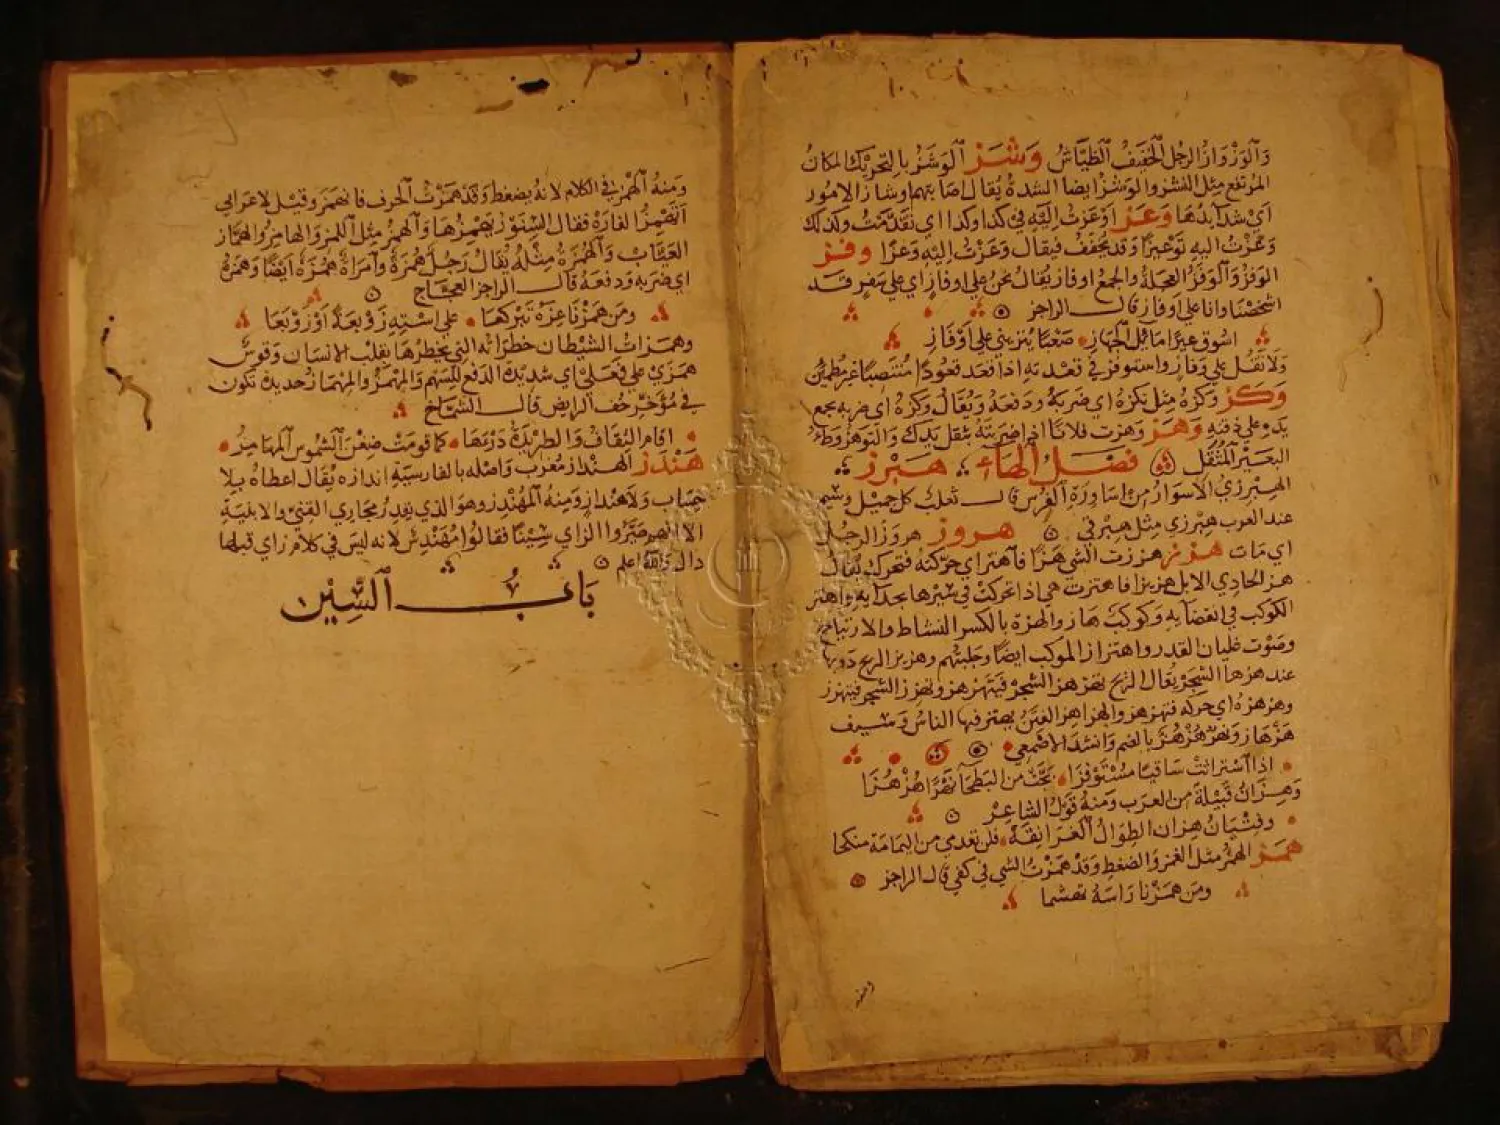 وَالوَزْوَازُ الرجل الخفيفُ الطيَّاشُ وَشَز الوَشَزُ بالتحريك المكانُ
المرتفع مثل النشز والوَشزُ ايضا الشدة يُقال اصابتهم وشاز الامور
اي شدايدُها وَعَز اوعَزْتُ اليه في كذا وكذا اي تقدَّمتُ وكذلك
وَعَّزْتُ اليه توعيزًا وقد يخفّفُ فيقال وَعَزْتُ اليه وَعزًا وفز
الوَفزُ وَالوَفَزُ العجلة والجمعُ اوفاز يُقالُ نحن على اوفازٍ اي على سفرٍ قد
اشخصنا وانا على اوفاز قال الراجز
اسُوق عيرًا مائل الجهاز صَعْبًا يُنزيني على اَوْفاز
ولا تقل على وفاز واستوفز في قعدته اذا قعد قعودًا منتصبًا غير مطمئن
وَكَز وكزهُ مثل نكزهُ اي ضربَهُ ودفعهُ ويُقالُ وكزهُ اي ضربه بجمع
يده على ذقنه وَهَز وَهزت فلانًا اذا ضربتهُ بثقل يدك والتوهّز وَطءُ
البعير المُثقَل فصل الهاء هبرز
الهبرزيُّ الاسوارُ من اساورة الفُرس قال ثعلب كل جميل وسيم
عند العرب هبرزي مثل هبرقي هروز هروز الرجل
اي مات هزز هززت الشي هزًّا فاهتز اي حرّكته فتحرك يُقال
هز الحادي الابل هزيزًا فاهتزت هي اذا تحركت في سيرها بحدايه واهتز
الكوكب في انقضايه وكوكبٌ هاز والهزة بالكسر النشاط والارتياح
وصَوت غليان القدر واهتزاز الموكب ايضًا وجلبتهم وهزيز الريح دويها
عند هزها الشجر يُقالُ الريح تهزهز الشجر فيتهزهز وتهزز الشجر فيتهزز
وهزهزهُ اي حركه فتهزهز والهزاهز الفتن يهتز فيها الناسُ وسيف
هَزهاز ونهرٌ هُزْهُزٌ بالضم وانشد الاصمعي
اذا استراثت ساقيًا مُستوْفِزَا بجّت من البطحاء نَهْرًا هُزْهُزَا
وَهِزّانُ قبيلةٌ من العرب ومنه قول الشاعر
وفتيانُ هزان الطِوالُ الغرانقة فلن تعدمي من اليمامة منكحا
همز الهمزُ مثل الغمز والضغط وقد همزتُ الشي في كفي قال الراجز
ومن همزنا راسَهُ تهشما
ومنهُ الهمزُ في الكلام لانهُ يُضغط وقد همزتُ الحرف فانهمز وقيل لاعرابي
اتهمزُ الفارة فقال السنّورُ يهمزُها والهمز مثل اللمز والهامزُ والهمّازُ
العيّاب والهُمزةُ مثله يُقالُ رجلٌ هُمزةٌ وامراةٌ هُمَزةٌ ايضًا وهمزهُ
اي ضربه ودفعهُ قال الراجز العجاج
ومن همزنا عزهُ تبركعا على استه زوبعةً اوزوبَعَا
وهمزات الشيطان خطراته التي يخطرها بقلب الانسان وقوسٌ
همزى على فعلى اي شديدة الدفع للسهم والمِهمزُ والمِهمازُ حديدةٌ تكون
في مؤخر خف الرايض قال الشماخ
اقام الثِقافُ والطريدةُ دَرْءَهَا كما قومت ضِغْنَ الشموس المهامزُ
هَندَز الهندازُ معرّب واصله بالفارسية اندازه يُقالُ اعطاهُ بلا
حساب ولا هنداز ومنه المهندز وهو الذي يقدِّر مجاري القُني والابنية
الا انهم صَيَّروا الزاي سينًا فقالوا مُهَندِس لانه ليس في كلام زاي قبلها
دال والله اعلم
بَابُ السِّين